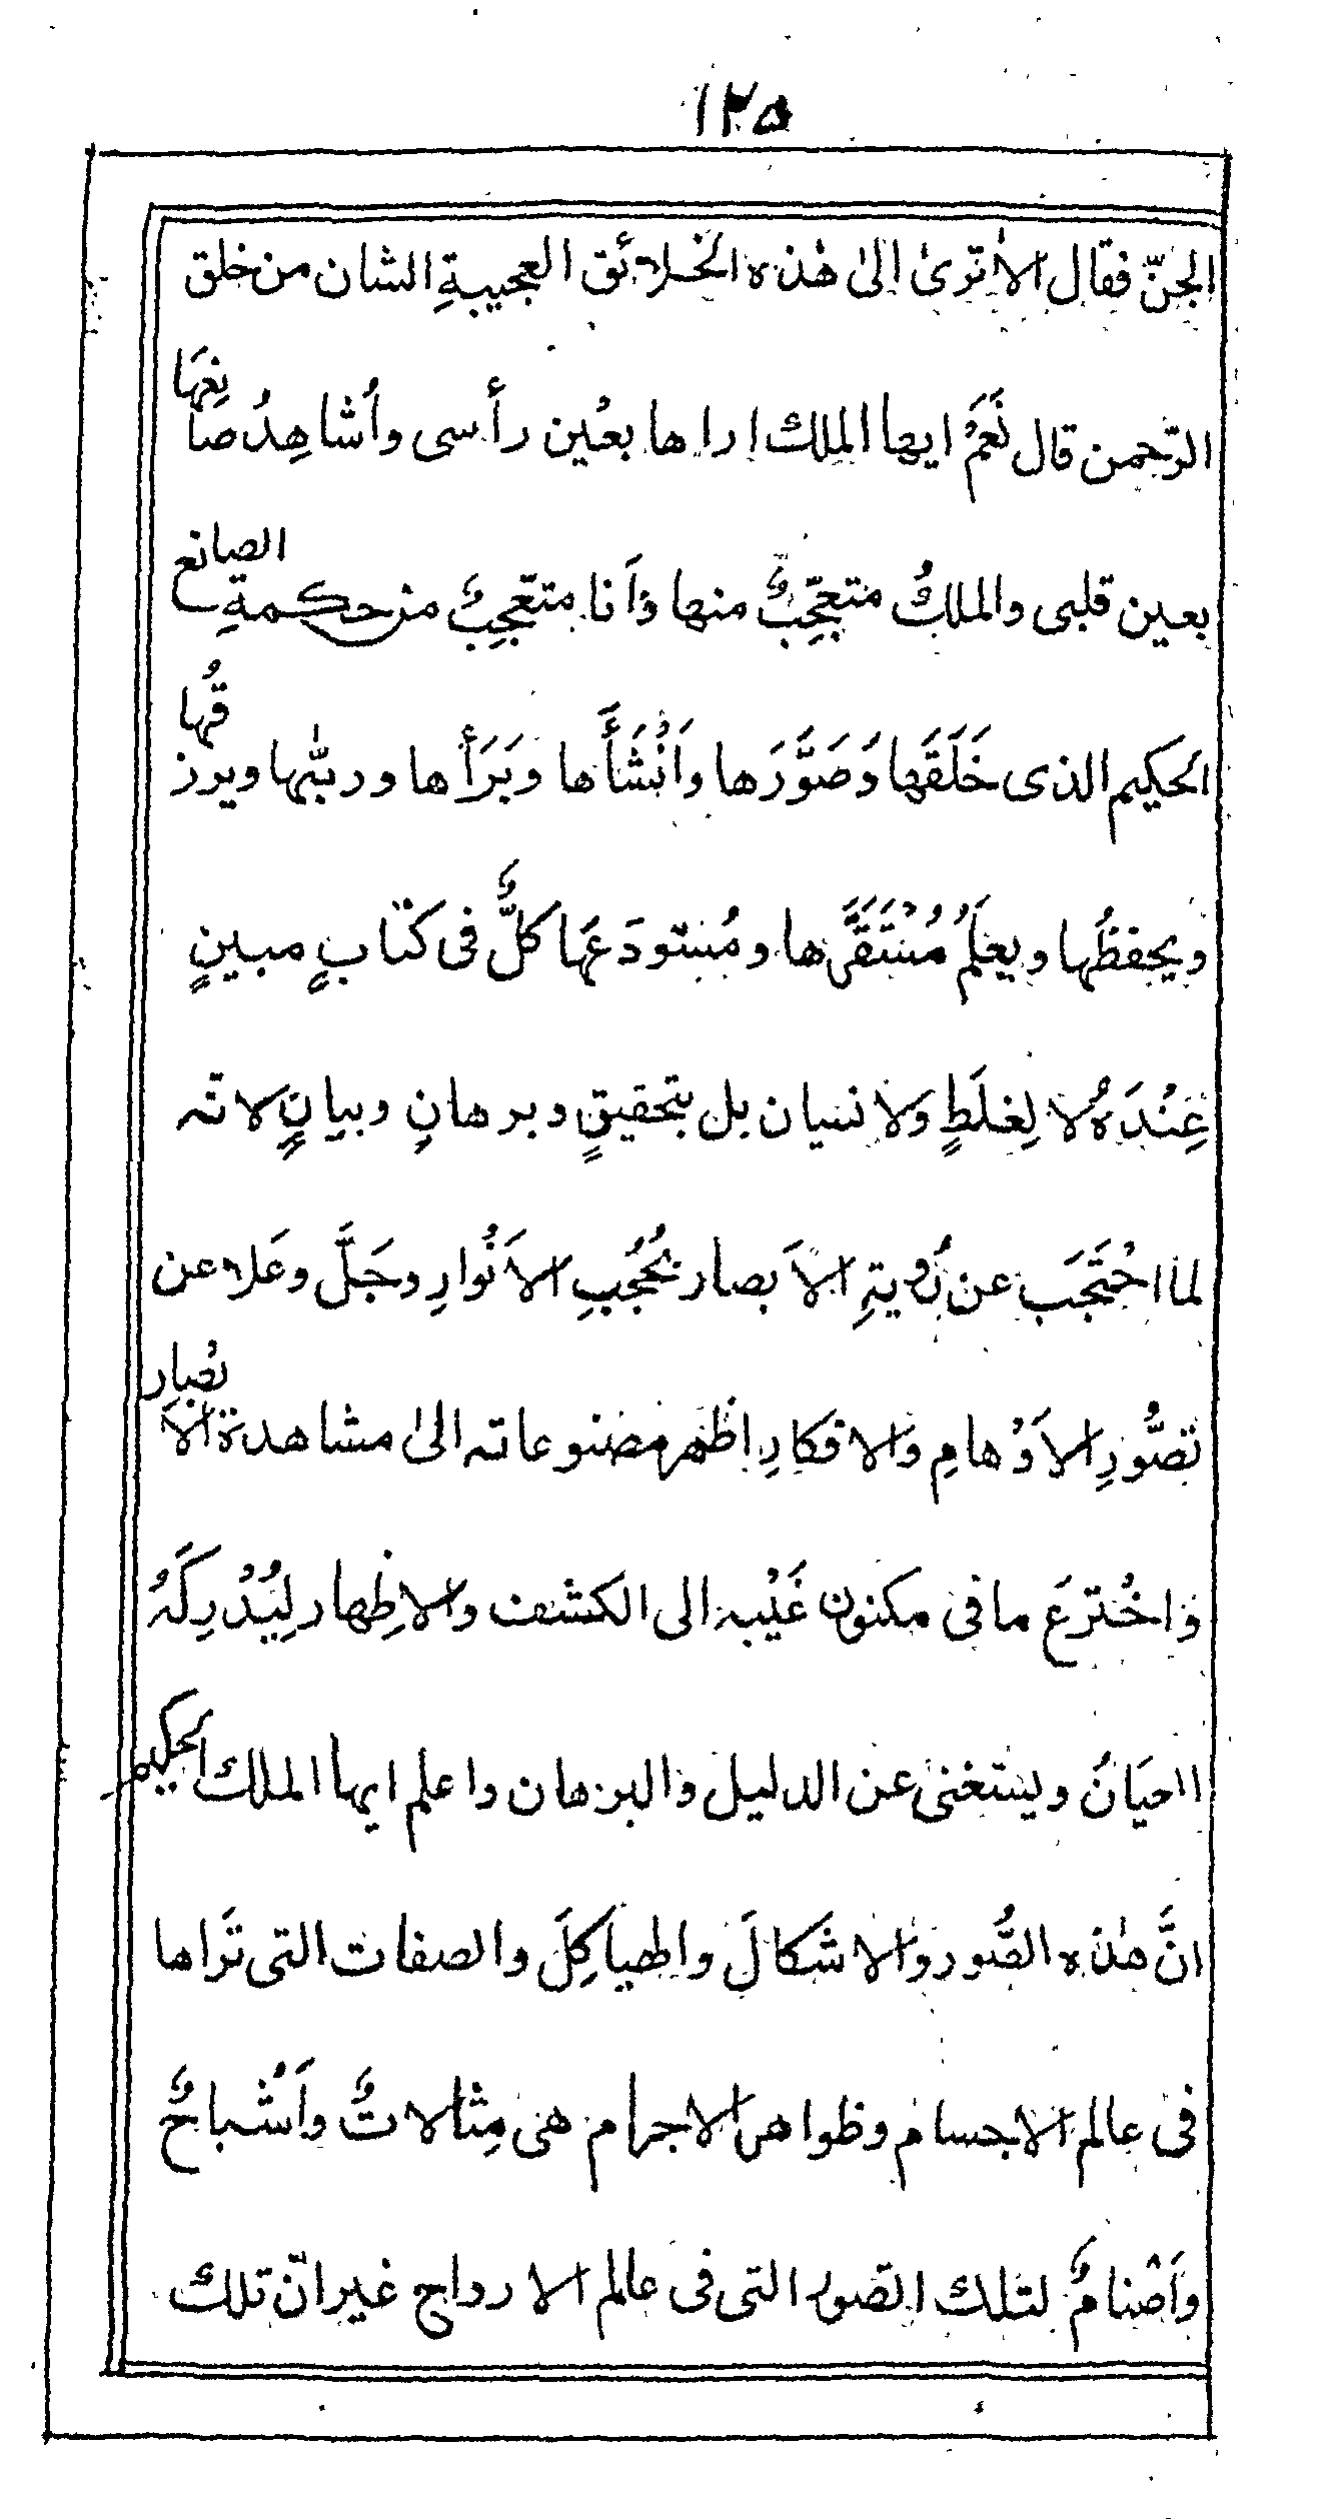 ١٢٥
الجنّ فقال الا ترىٰ الىٰ هٰذه الخلائق العجيبةِ الشان من خلق
الرّحمن قال نَعَمْ ايها الملك اراها بعُين رأسى واُشاهِدُ صانِعَها
بعين قلبى والملكُ متعجّبٌ منها وَاَنا متعّجِبٌ من حكمةِ الصانع
الحكيم الذى خَلَقَها وَصَوَّرَها واَنْشَأَها وَبَرَأَها وربّٰها ويرزقُها
وَيحفظُها ويعلَمُ مُسْتَقَرَّها ومُستودَعَها كلٌّ فى كتابٍ مبينٍ
عِنْدَهُ لا لِغلَطٍ ولا نسيان بل بتحقيقٍ وبرهانٍ وبيانٍ لانه
لما احْتَجَبَ عن رُويةِ الاَبصار بحُجُبِ الاَنْوارِ وجَلَّ وعَلا عن
تصُّورِ الاَوْهامِ والافكارِ اظهر مصنوعاته الىٰ مشاهدة الاَبْصارِ
وَاخْترعَ ما فى مكنون غَيْبه الى الكشف والاِظهار لِيُدْرِكَهُ
االعيَانُ ويستغنى عن الدليل والبرهان واعلم ايها الملك الحكيم
انَّ هٰذه الصُّور والاشكالَ والهياكِلَ والصفات التى تَراها
فى عالم الاجسام وظواهر الاجرام هى مِثالاتٌ واَشْباحٌ
واَصْنامٌ لتلك الصّور التى فى عالم الارواح غير انّ تلك